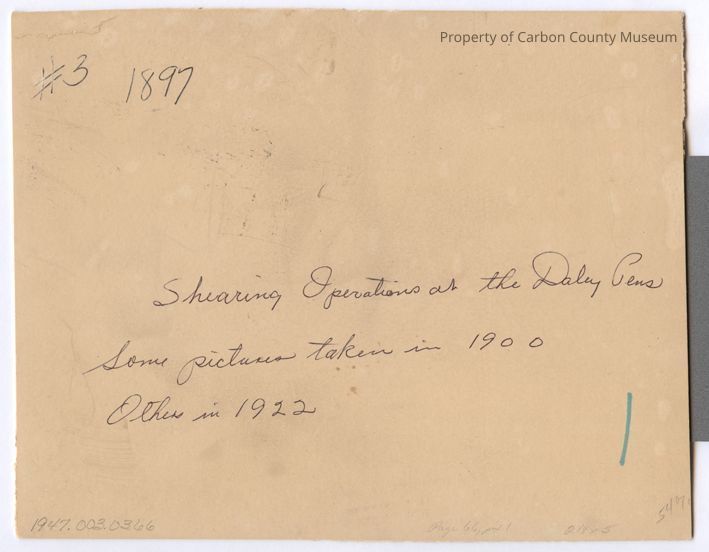 Property of Carbon County Museum
#3 1897
Shearing Operations at the Daley Pens
Some pictures taken in 1900
Others in 1922
1947.003.0366